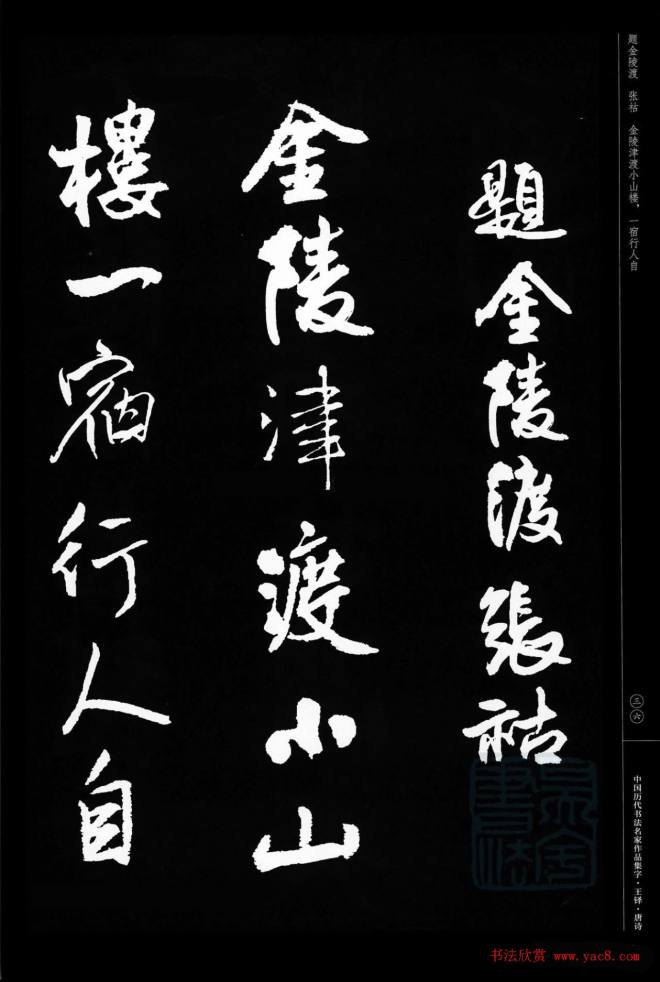 题金陵渡 张祜 金陵津渡小山楼，一宿行人自
題金陵渡張祜
金陵津渡小山
樓一宿行人自
三六
中国历代书法名家作品集字·王铎·唐诗
书法欣赏 www.yac8.com